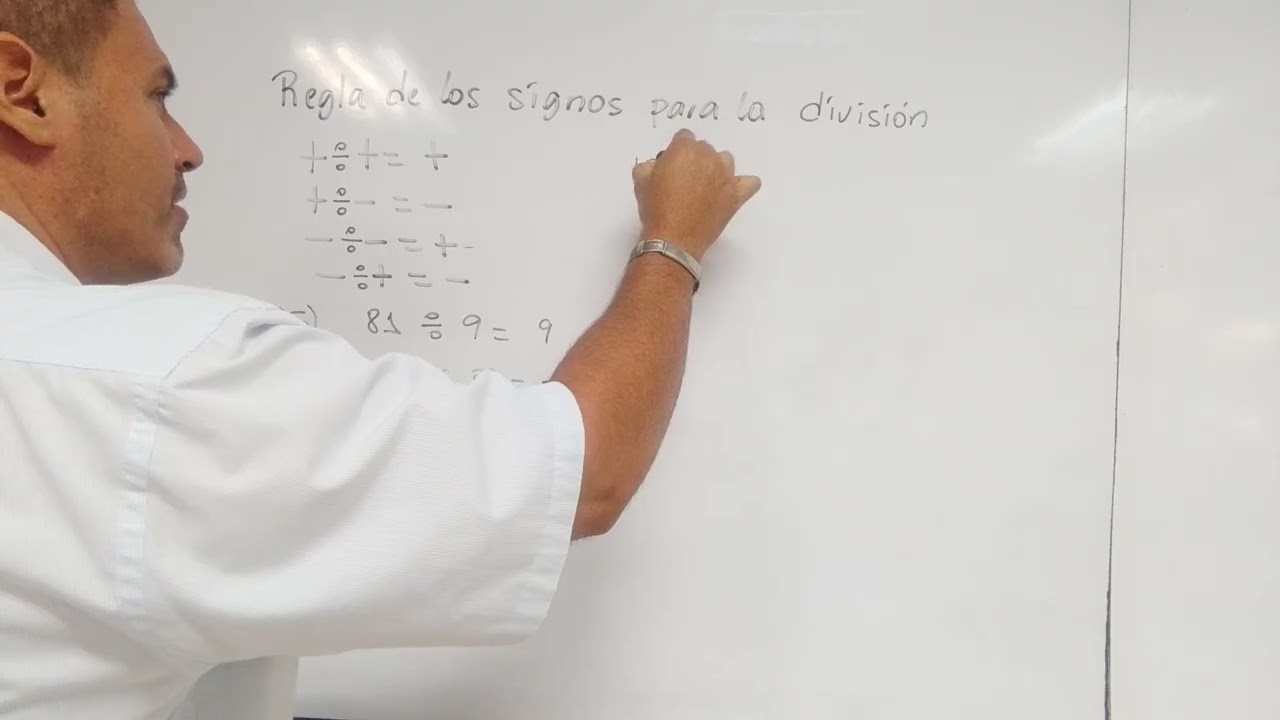 Regla de los signos para la división
+ ÷ + = +
+ ÷ - = -
- ÷ - = +
- ÷ + = -
81 ÷ 9 = 9